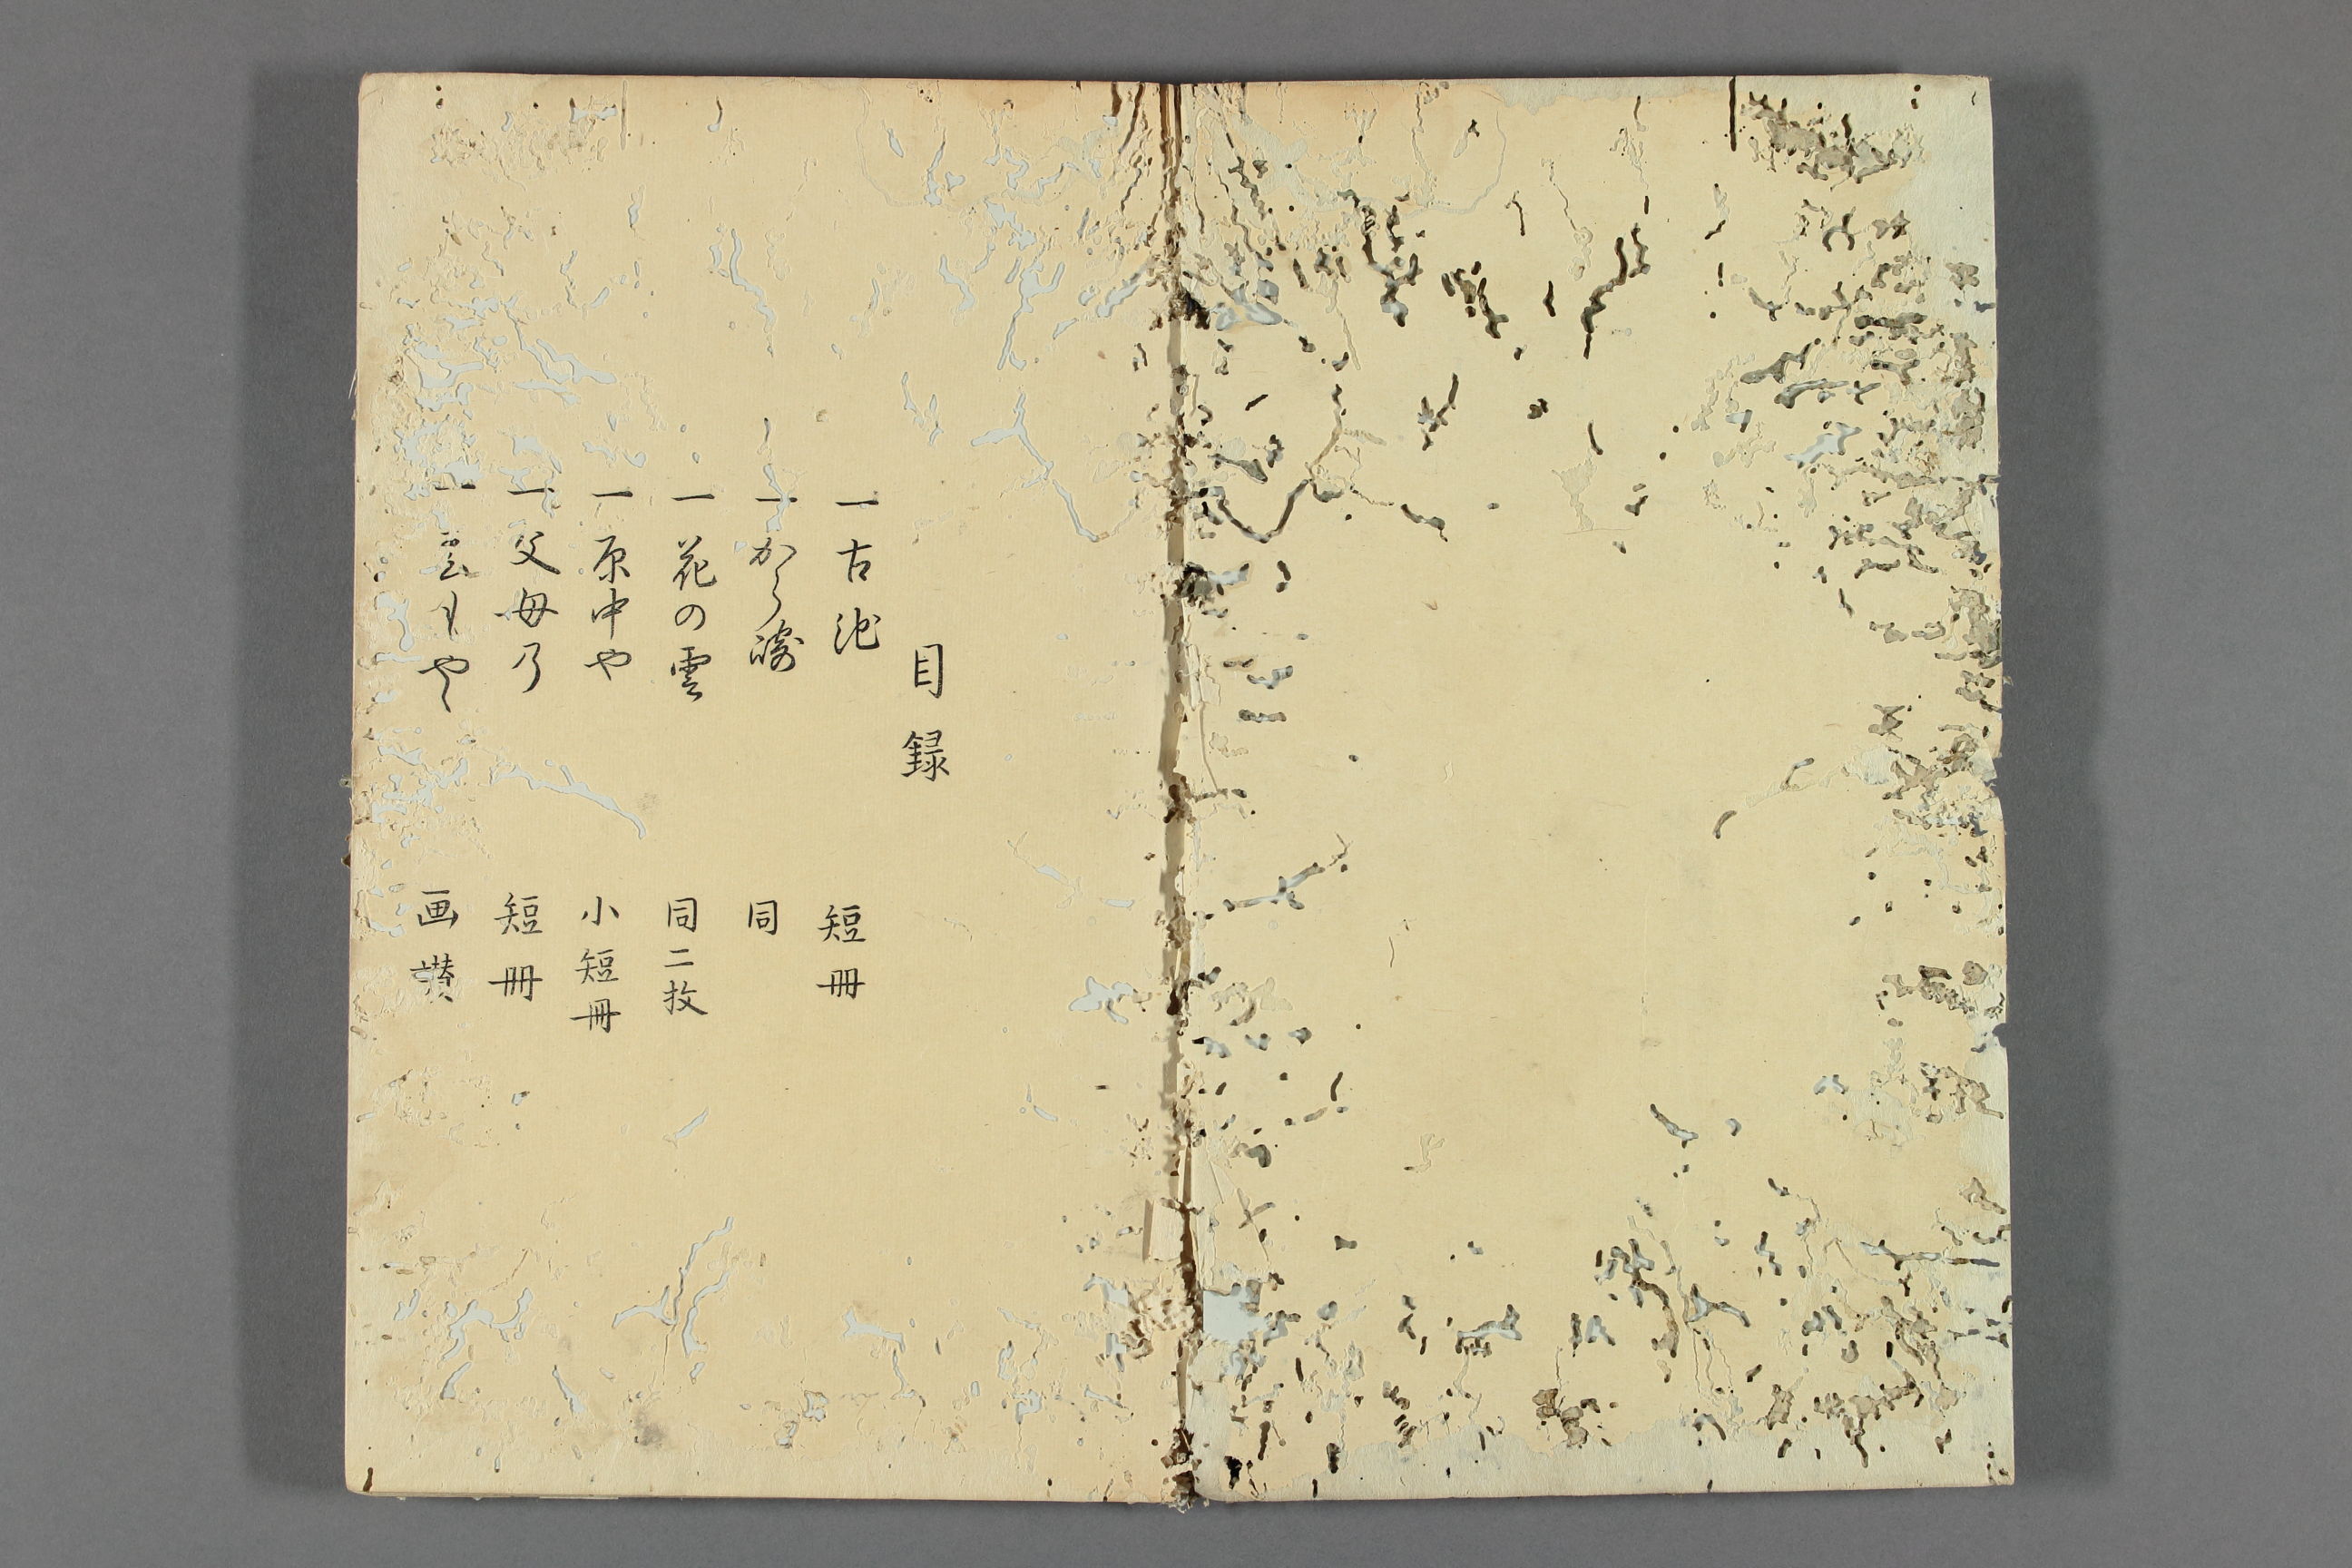 目録
一 古池 短冊
一 から崎 同
一 花の雲 同二枚
一 原中や 短冊小
一 父母の 短冊
一 や 画讃